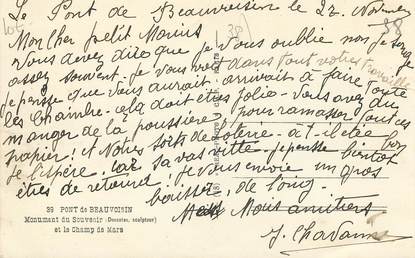 Le Pont de Beauvoisin le 22. Novembre
Mon cher petit Monis
Vous devez dire que je vous oublie non je songe
assez souvent. je vous vois dans tout votre travaille
je pense que vous aurait arrivait à faire toute
les chambre. cela doit être jolie. vous avez du
manger de la poussière pour ramasser tout ces
papier! et Notre sorts de loterie a-t-il été bon
je l'espère. car sa vas vitte. je pense bientot
êtes de retour! je vous envoie un gros
baisser, de loing.
Mois amitiers
J. Chavanne
38
39 PONT de BEAUVOISIN
Monument du Souvenir (Descatex, sculpteur)
et le Champ de Mars